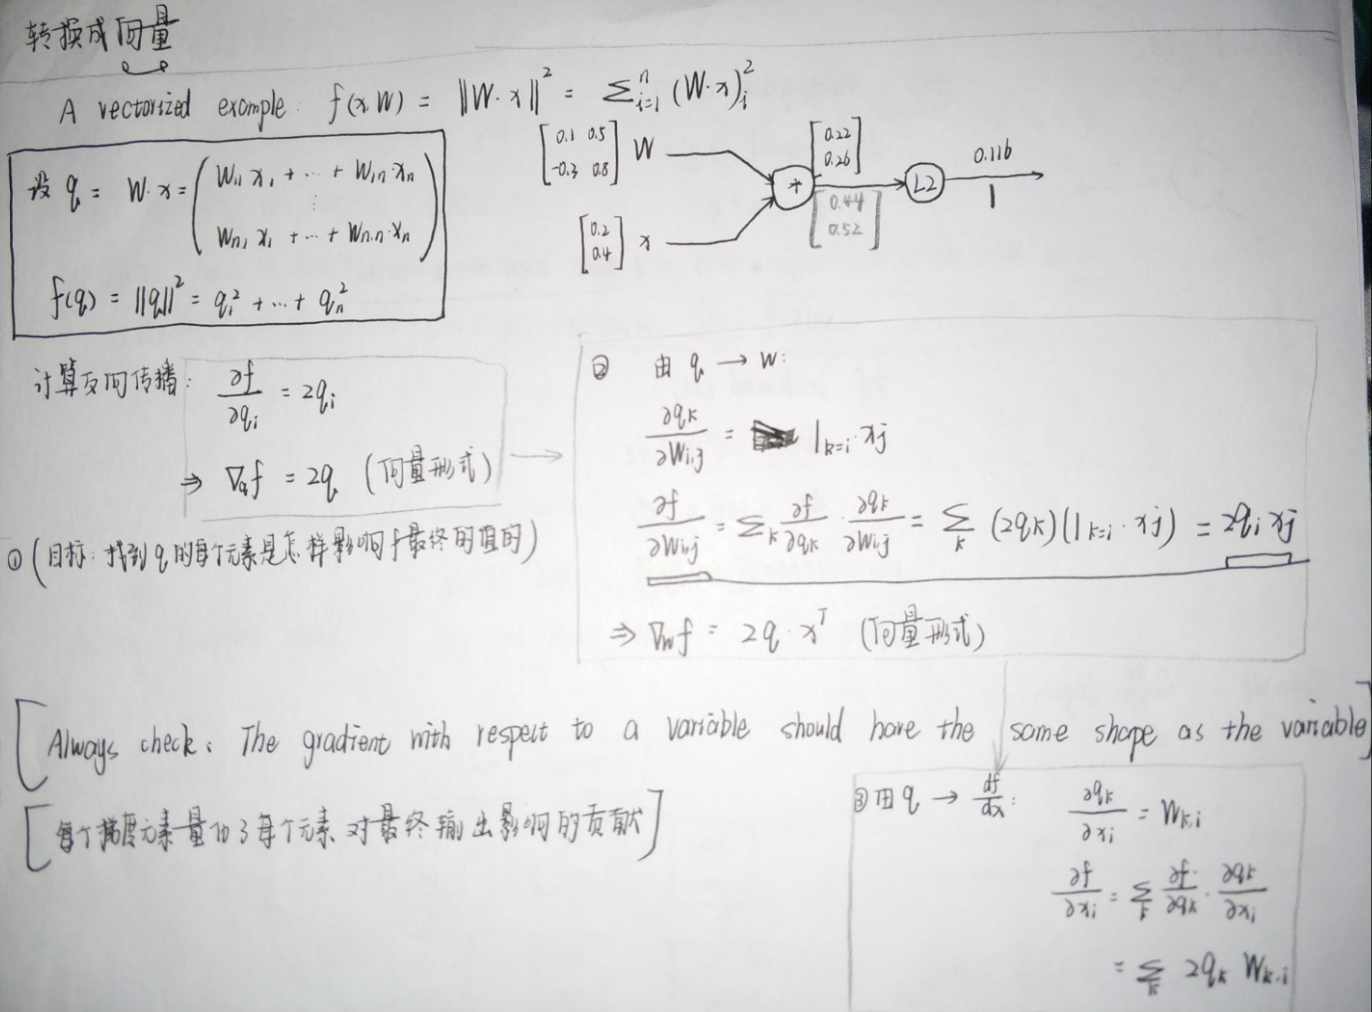 转换成向量
A vectorized example: f(x,W) = ||W·x||² = Σⁿᵢ₌₁ (W·x)ᵢ²
[0.1 0.5
-0.3 0.8] W
[0.22
0.26]
0.116
+
L2
1
[0.44
0.52]
[0.2
0.4] x
设 q = W·x = ( W₁₁x₁ + ··· + W₁ₙ·xₙ
⋮
Wₙ₁x₁ + ··· + Wₙ,ₙ·xₙ )
f(q) = ||q||² = qᵢ² + ··· + qₙ²
计算反向传播: ∂f/∂qᵢ = 2qᵢ
⇒ ∇qf = 2q (向量形式)
① (目标: 找到q的每个元素是怎样影响f最终的值的)
② 由 q → W:
∂qₖ/∂Wᵢ,ⱼ = 1ₖ₌ᵢ·xⱼ
∂f/∂Wᵢ,ⱼ = Σₖ ∂f/∂qₖ · ∂qₖ/∂Wᵢ,ⱼ = Σₖ (2qₖ)(1ₖ₌ᵢ·xⱼ) = 2qᵢxⱼ
⇒ ∇wf = 2q·xᵀ (向量形式)
[Always check: The gradient with respect to a variable should have the same shape as the variable]
[每个梯度元素量化了每个元素对最终输出影响的贡献]
③ 由 q → df/dx: ∂qₖ/∂xᵢ = Wₖ,ᵢ
∂f/∂xᵢ = Σₖ ∂f/∂qₖ · ∂qₖ/∂xᵢ
= Σₖ 2qₖ Wₖ,ᵢ